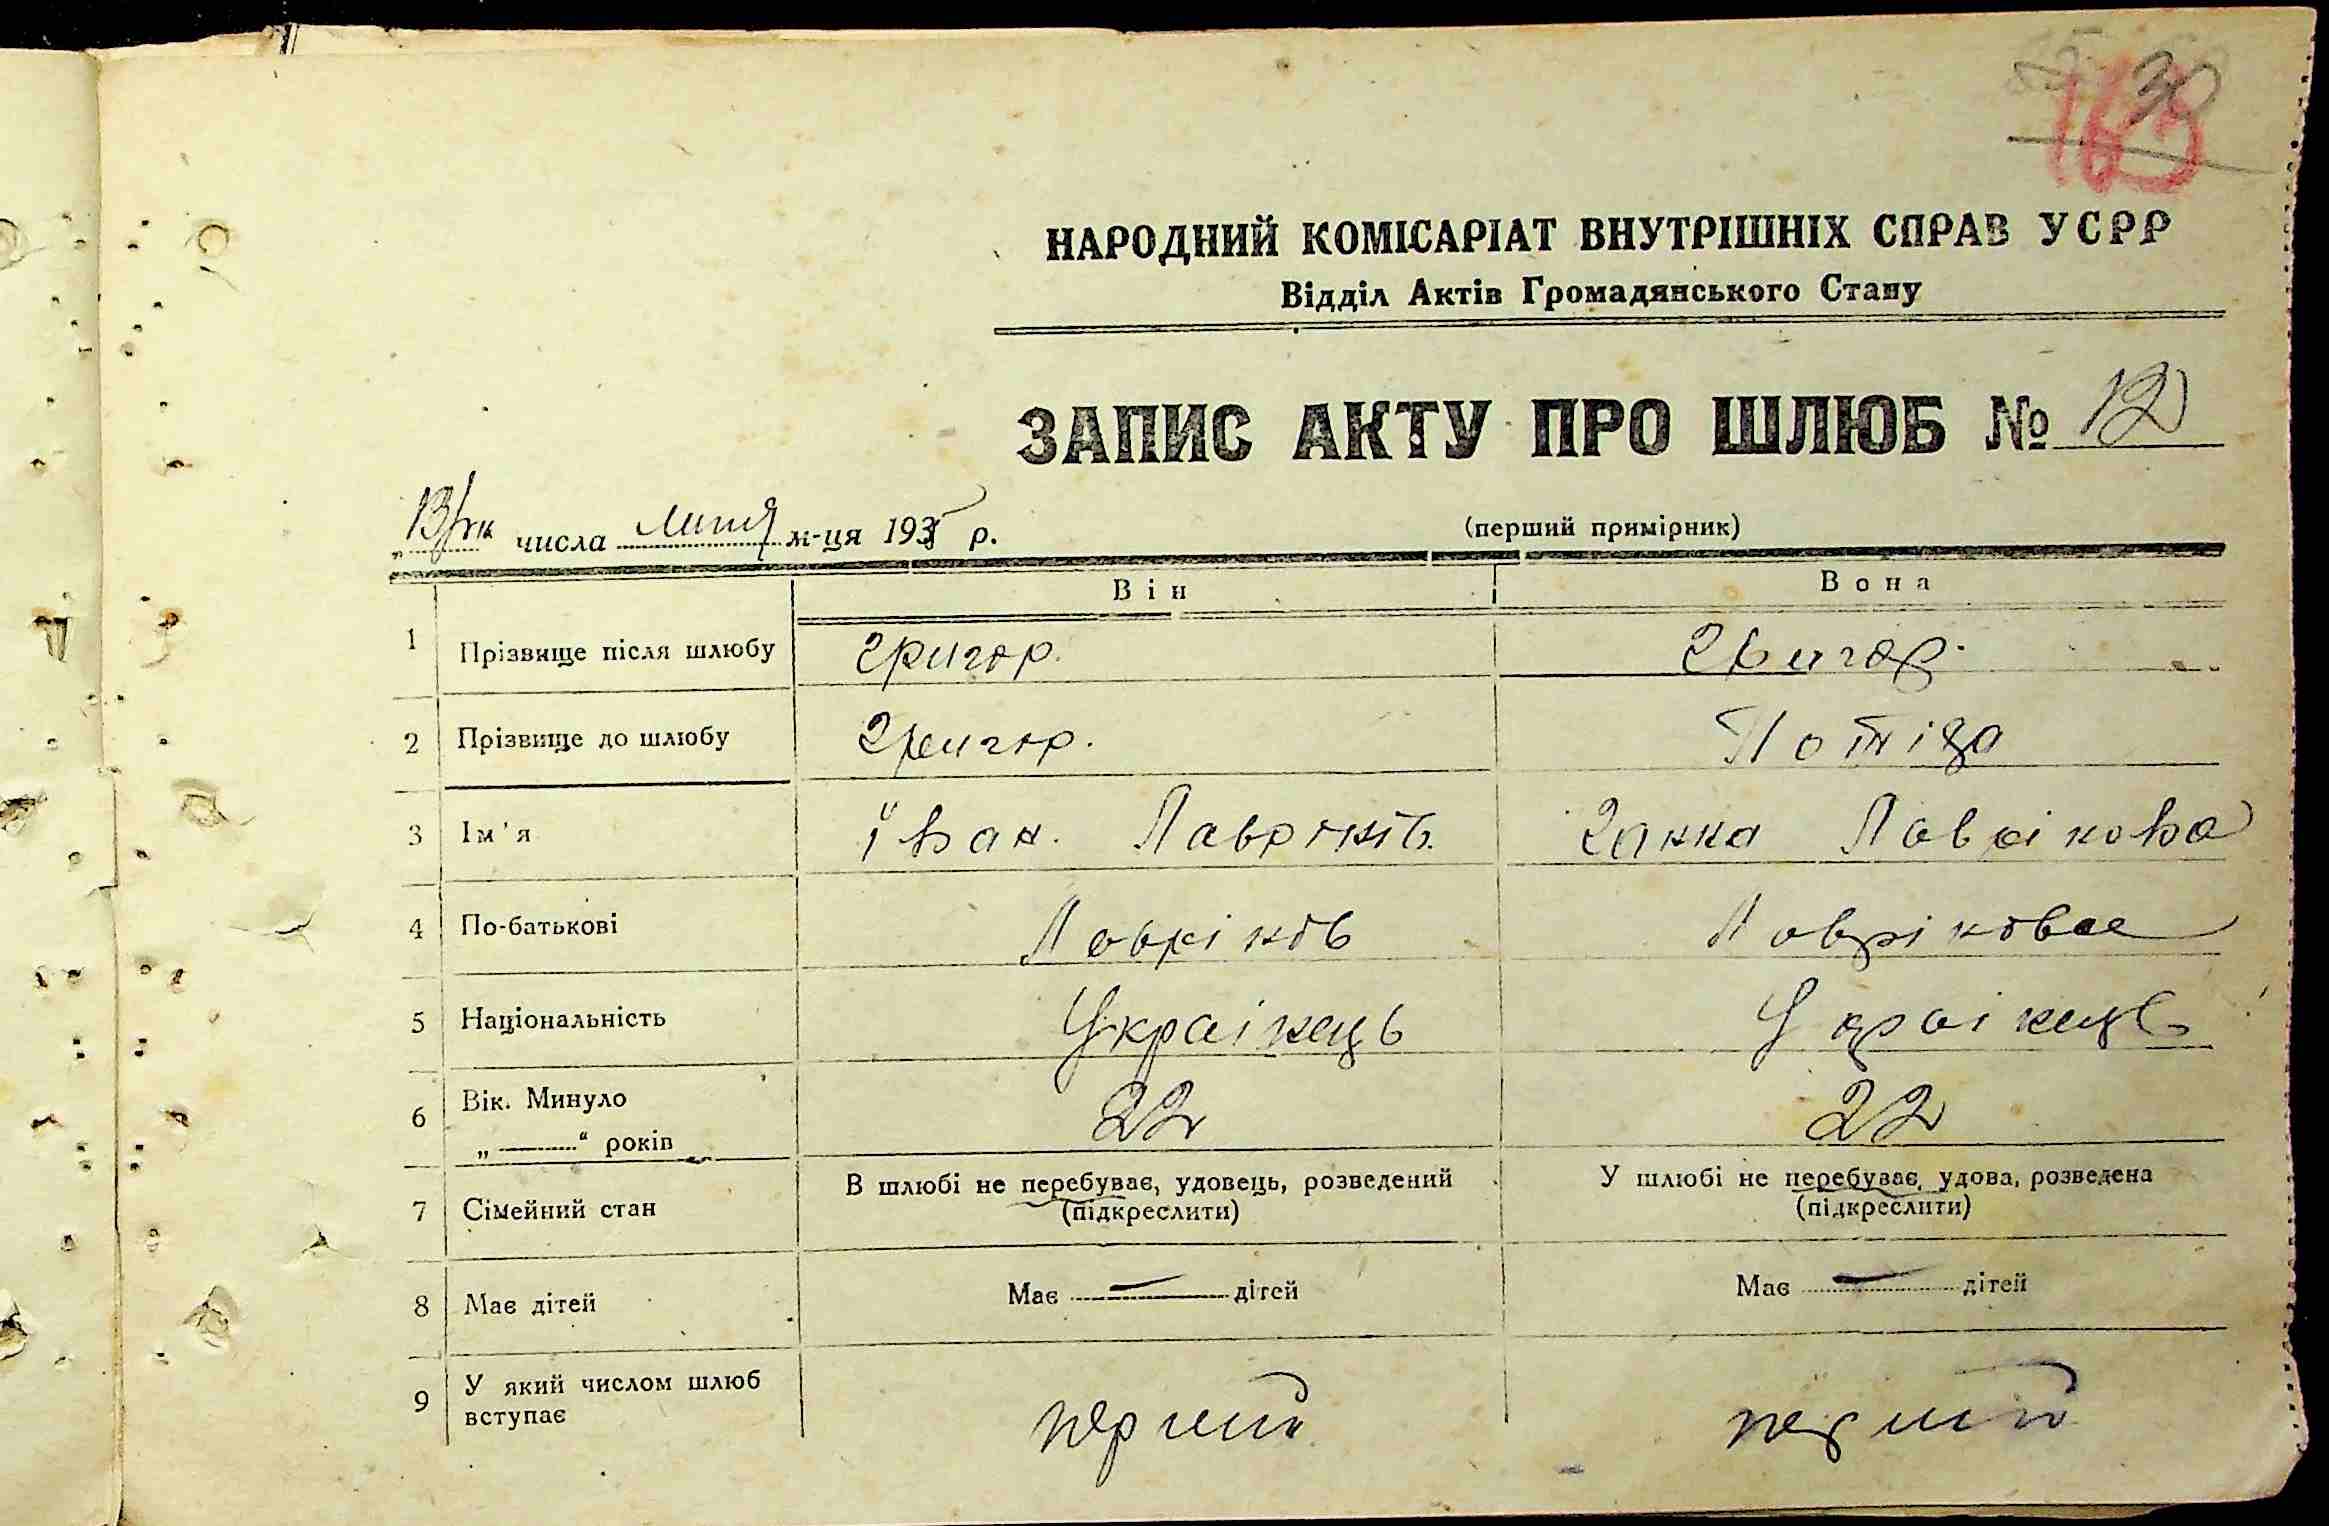 30
163
НАРОДНИЙ КОМІСАРІАТ ВНУТРІШНІХ СПРАВ УСРР
Відділ Актів Громадянського Стану
ЗАПИС АКТУ ПРО ШЛЮБ № 12
числа липня м-ця 193 р.
(перший примірник)
Він Вона
1 Прізвище після шлюбу Григор. Григор.
2 Прізвище до шлюбу Григор.
3 Ім'я Іван. Лавріків. Ганна Лаврікова
4 По-батькові Лавріків Лаврікова
5 Національність Україкець Україкець
6 Вік. Минуло 22 22
„ “ років
7 Сімейний стан В шлюбі не перебуває, удовець, розведений У шлюбі не перебуває, удова, розведена
(підкреслити) (підкреслити)
8 Має дітей Має — дітей Має — дітей
9 У який числом шлюб
вступає перший перший